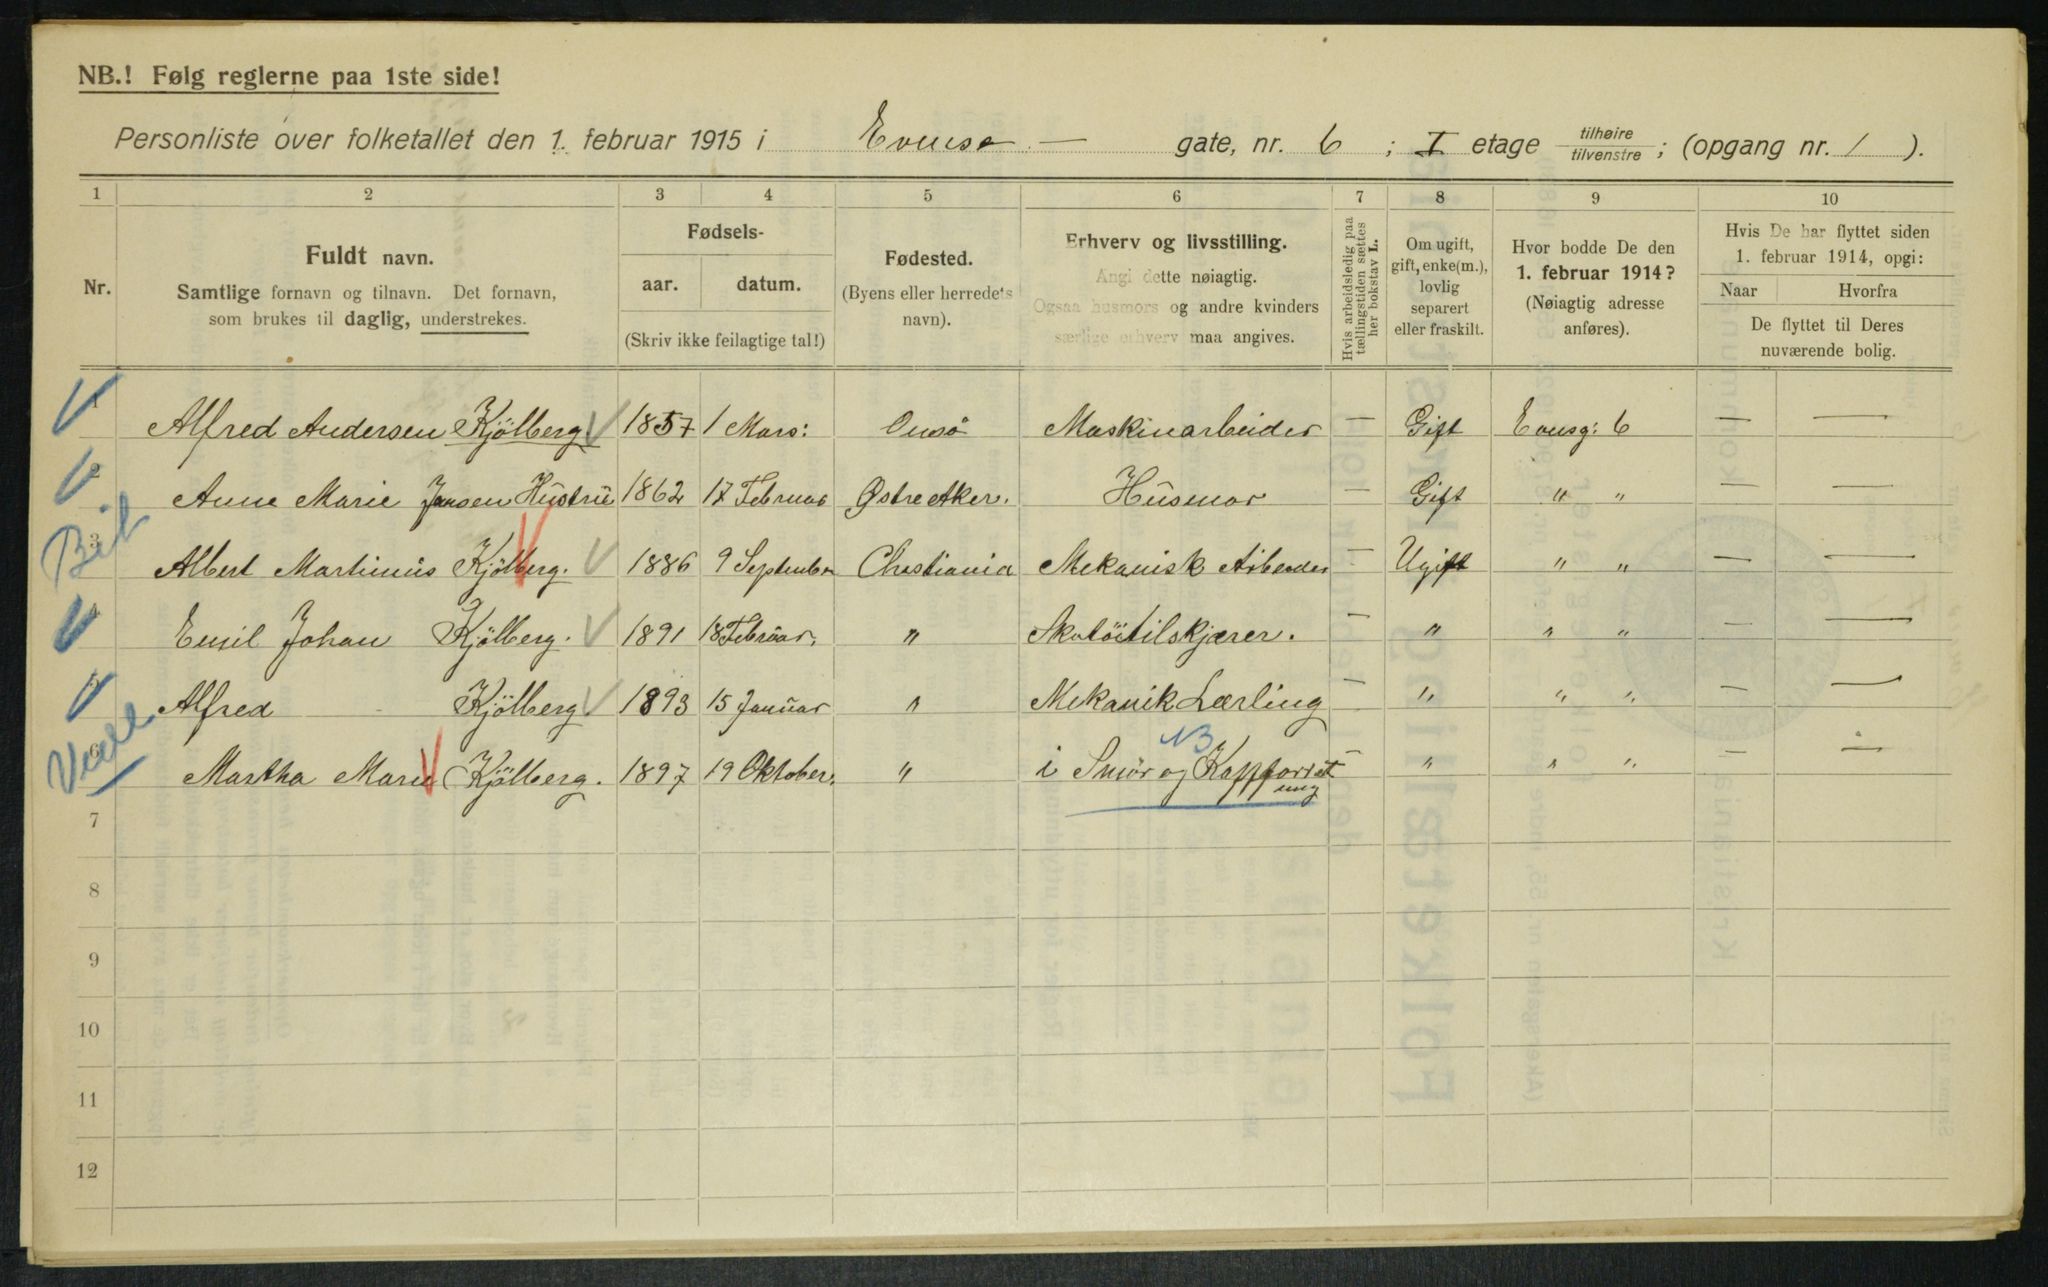 NB.! Følg reglerne paa 1ste side!
Personliste over folketallet den 1. februar 1915 i Evense — gate, nr. 6 ; I etage tilhøire / tilvenstre ; (opgang nr. 1 ).
1 2 3 4 5 6 7 8 9 10
Nr.
Fuldt navn.
Samtlige fornavn og tilnavn. Det fornavn,
som brukes til daglig, understrekes.
Fødsels-
aar. datum.
(Skriv ikke feilagtige tal!)
Fødested.
(Byens eller herredets
navn).
Erhverv og livsstilling.
Angi dette nøiagtig.
Ogsaa husmors og andre kvinders
særlige erhverv maa angives.
Hvis arbeidsledig paa
tællingstiden sættes
her bokstav L.
Om ugift,
gift, enke(m.),
lovlig
separert
eller fraskilt.
Hvor bodde De den
1. februar 1914?
(Nøiagtig adresse
anføres).
Hvis De har flyttet siden
1. februar 1914, opgi:
Naar Hvorfra
De flyttet til Deres
nuværende bolig.
1 Alfred Andersen Kjölberg 1857 1 Mars: Onsö Maskinarbeider — Gift Evensg: 6 — —
2 Anne Marie Jansen Hustru 1862 17 Februar Østre Aker. Husmor — Gift " " — —
3 Albert Martinius Kjölberg. 1886 9 September Christiania Mekanisk Arbeider — Ugift " " — —
4 Emil Johan Kjölberg. 1891 18 Februar. " Skotöitilskjærer. — " " " — —
5 Alfred Kjölberg. 1893 15 Januar " Mekanik Lærling — " " " — —
6 Martha Marie Kjölberg. 1897 19 Oktober. " i Smör og — " " " — —
7
8
9
10
11
12